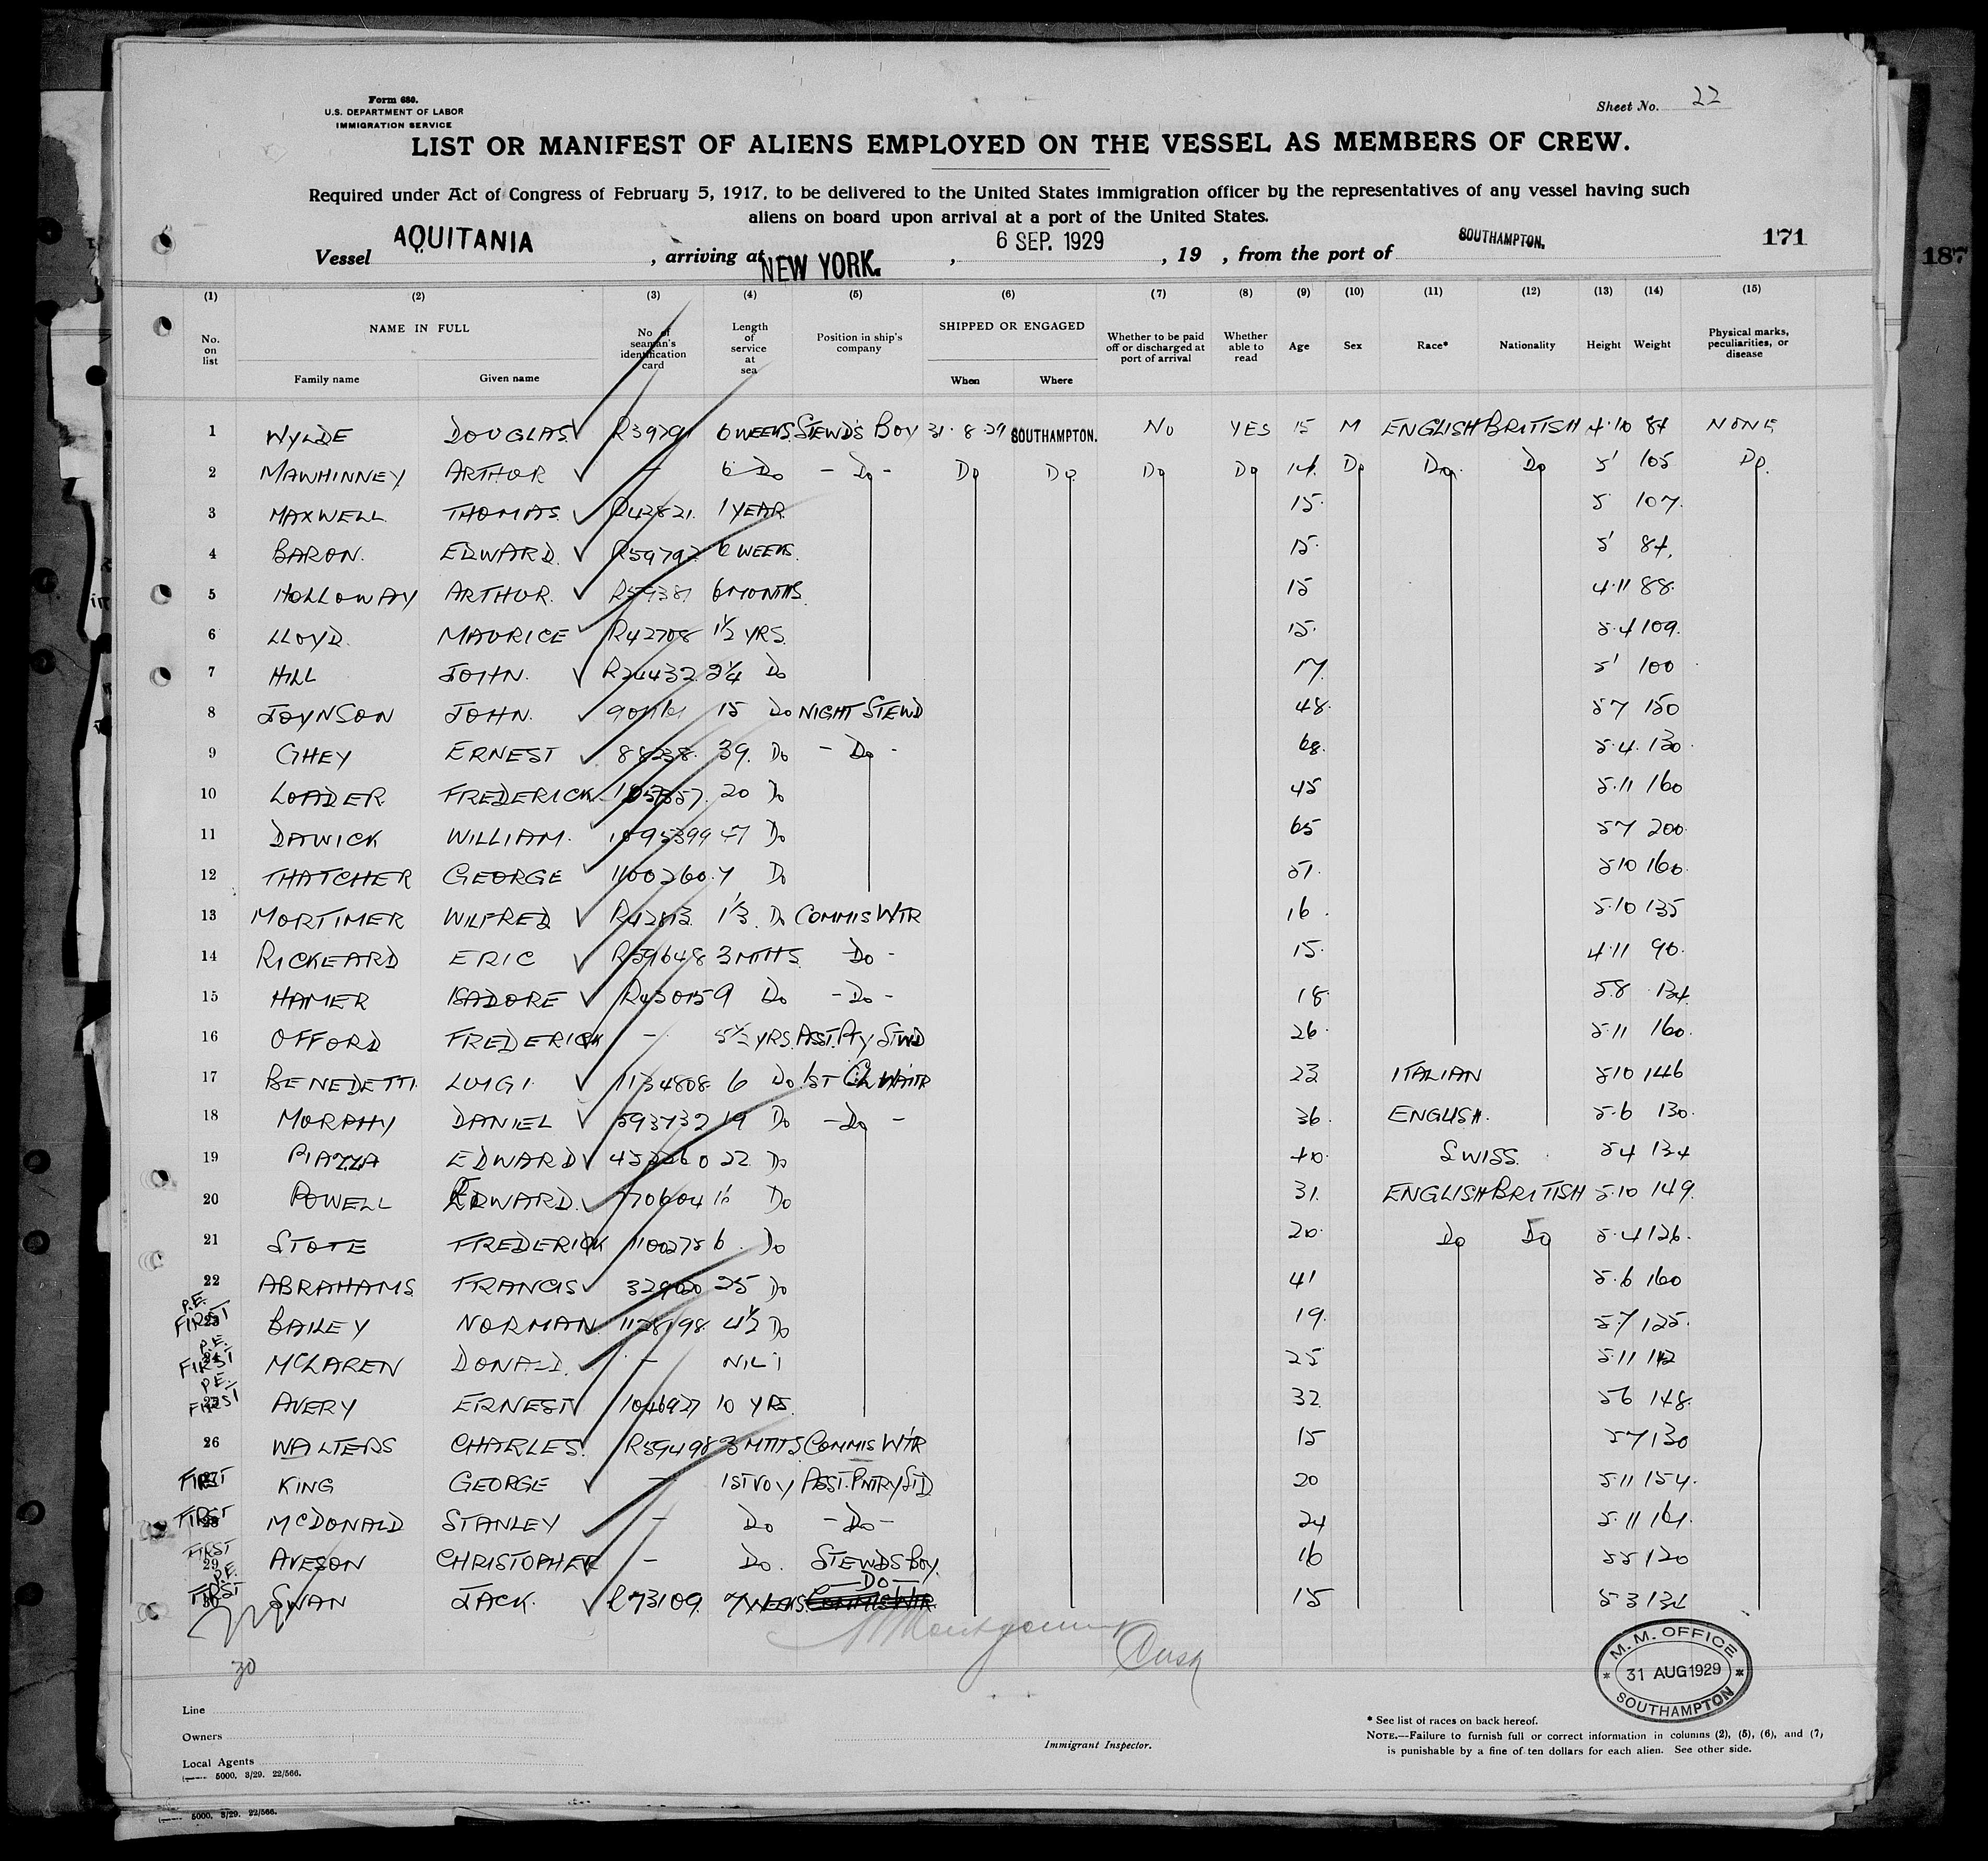 Form 680.
U.S. DEPARTMENT OF LABOR
IMMIGRATION SERVICE
Sheet No. 22
LIST OR MANIFEST OF ALIENS EMPLOYED ON THE VESSEL AS MEMBERS OF CREW.
Required under Act of Congress of February 5, 1917, to be delivered to the United States immigration officer by the representatives of any vessel having such
aliens on board upon arrival at a port of the United States.
Vessel AQUITANIA, arriving at NEW YORK., 6 SEP. 1929, 19 , from the port of SOUTHAMPTON. 171
187
(1) (2) (3) (4) (5) (6) (7) (8) (9) (10) (11) (12) (13) (14) (15)
No. on list NAME IN FULL Family name Given name No. of seaman's identification card Length of service at sea Position in ship's company SHIPPED OR ENGAGED When Where Whether to be paid off or discharged at port of arrival Whether able to read Age Sex Race* Nationality Height Weight Physical marks, peculiarities, or disease
1 WYLDE DOUGLAS 6 WEEKS STEWD'S BOY 31·8·29 SOUTHAMPTON. NO YES 15 M ENGLISH BRITISH 4·10 84 NONE
2 MAWHINNEY ARTHUR - 6 Do - Do - Do Do Do Do 14 Do Do Do 5' 105 Do.
3 MAXWELL THOMAS R42821 1 YEAR 15 5 107
4 BARON. EDWARD R59792 6 WEEKS 15 5' 84
5 HOLLOWAY ARTHUR 6 MONTHS 15 4·11 88
6 LLOYD MAURICE R42708 1½ YRS 15 5·4 109
7 HILL JOHN. R24432 2¼ Do 17 5' 100
8 JOYNSON JOHN. 15 Do NIGHT STEWD 48 5 7 150
9 GHEY ERNEST 88238 39. Do - Do - 68 5·4 130
10 LOADER FREDERICK 20 Do 45 5·11 160
11 DAWICK WILLIAM. 1095399 47 Do 65 5 7 200
12 THATCHER GEORGE 1100260 7 Do 51 5 10 160
13 MORTIMER WILFRED R42813 1⅓ Do COMMIS WTR 16 5·10 135
14 RICKEARD ERIC R59648 3 MTHS Do - 15 4·11 90
15 HAMER ISADORE R43015 9 Do - Do - 18 5 8 134
16 OFFORD FREDERICK - 5½ YRS. ASST. P'y STWD 26 5·11 160
17 BENEDETTI LUIGI 1134808 6 Do 1ST CL WAITR 23 ITALIAN 5 10 146
18 MORPHY DANIEL 593732 19 Do - Do - 36 ENGLISH. 5·6 130
19 PIAZZA EDWARD 22 Do 40 SWISS. 5 4 134
20 POWELL EDWARD. 770604 Do 31 ENGLISH BRITISH 5·10 149
21 STOTE FREDERICK 1100275 6 Do 20 Do Do 5·4 126
22 ABRAHAMS FRANCIS 25 Do 41 5·6 160
P.E. FIRST 23 BAILEY NORMAN 1128198 4½ Do 19 5·7 125
P.E. FIRST 24 McLAREN DONALD. - NIL 25 5·11 142
P.E. FIRST 25 AVERY ERNEST 1046927 10 YRS. 32 5 6 148
26 WALTERS CHARLES R59498 3 MTHS COMMIS WTR 15 5 7 130
FIRST 27 KING GEORGE - 1ST VOY ASST. PNTRY STD 20 5·11 154
FIRST 28 McDONALD STANLEY - Do - Do - 24 5·11 161
FIRST 29 AVESON CHRISTOPHER - Do. STEWDS BOY. 16 5 5 120
P.E. FIRST 30 SWAN JACK. R73109 7 WEEKS - Do - 15 5 3
30
M. M. OFFICE
31 AUG 1929
SOUTHAMPTON
Line
Owners
Local Agents
5000. 3/29. 22/566.
Immigrant Inspector.
* See list of races on back hereof.
NOTE.—Failure to furnish full or correct information in columns (2), (5), (6), and (7)
is punishable by a fine of ten dollars for each alien. See other side.
5000. 3/29. 22/566.